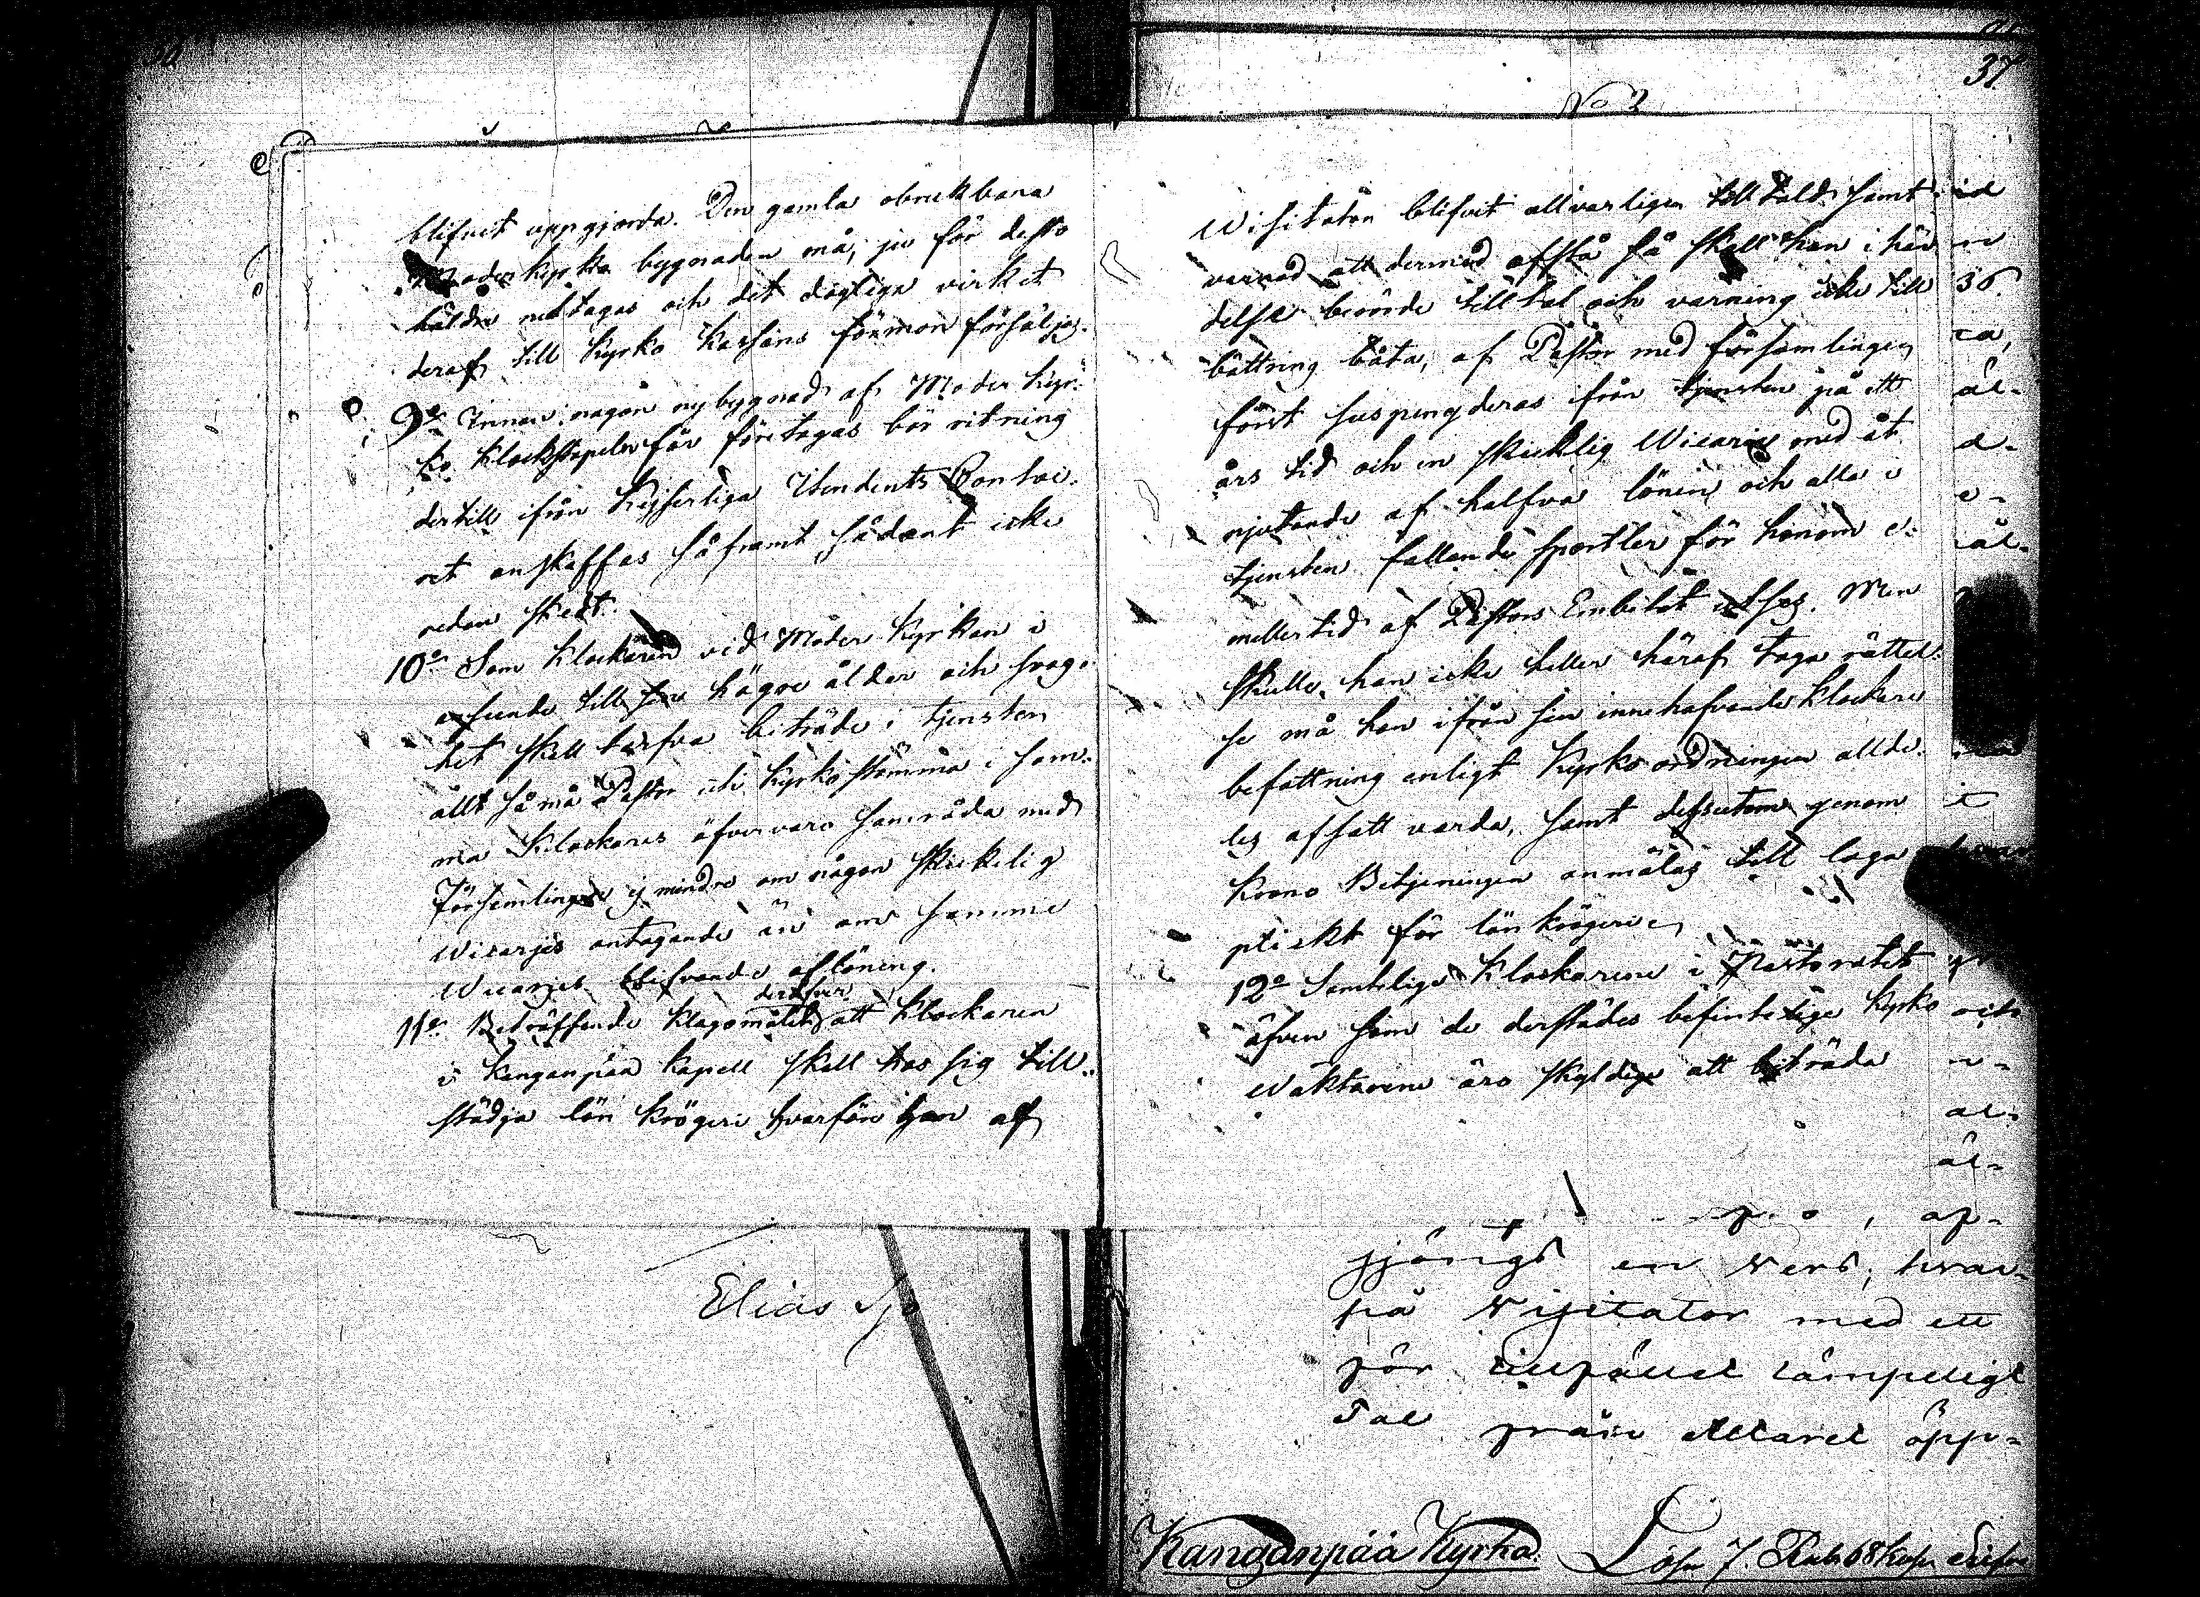 37
No 2
blifvit uppgjorda. Den gamla obrukbara
Moderkyrko bygnaden må, ju för desto
håldre nedtagas och det dugliga virket
deraf till Kyrko Kassans förmon försäljas.
9o Innan någon nybygnad af Moder Kyr-
ko Klockstapeln får företagas bör ritning
dertill ifrån Kejserliga Itendents Contoi-
ret anskaffas såframt sådant icke
redan skedt.
10o Som Klockaren vid Moder Kyrkan i
afseende till sin högre ålder och svag-
het skall tarfva biträde i tjensten
allt så må Pastor uti Kyrkostämma i sam-
ma Klockares öfvervaro samråda med
Församlingen ej mindre om någon skickelig
Vicaries antagande än om samme
Vicaries blifvande aflöning.
11o Beträffande klagomålet deröfver att Klockaren
i Kanganpää Kapell skall hos sig till-
städja lön krögeri hvarföre han af
Visitator blifvit allvarligen till tald samt
varnad att dermed afstå så skall han i hän
delse berörde tilltal och varning icke till
bättring båta, af Pastor med församlingen
först suspenderas ifrån tjensten på ett
års tid och en skicklig Vicarius med åt
njutande af halfva lönen och alla i
tjensten fallande sportler för honom e-
mellertid af Pastors Embetet utses. Men
skulle han icke heller häraf taga rättel-
se må han ifrån sin innehafvande Klockare
befattning enligt Kyrko ordningen allde-
les afsatt varda, samt dessutom genom
Krono Betjeningen anmälas till laga
plickt för lön krögeri
12o Samtelige Klockarene i Pastoratet
äfven som de derstädes befintelige Kyrko
Väktarene äro skyldige att biträda
Elias
sjöngs en vers, hvar-
på Visitator med ett
för tillfället lämpeligt
Tal från Altaret öpp-
Kangänpää Kyrka